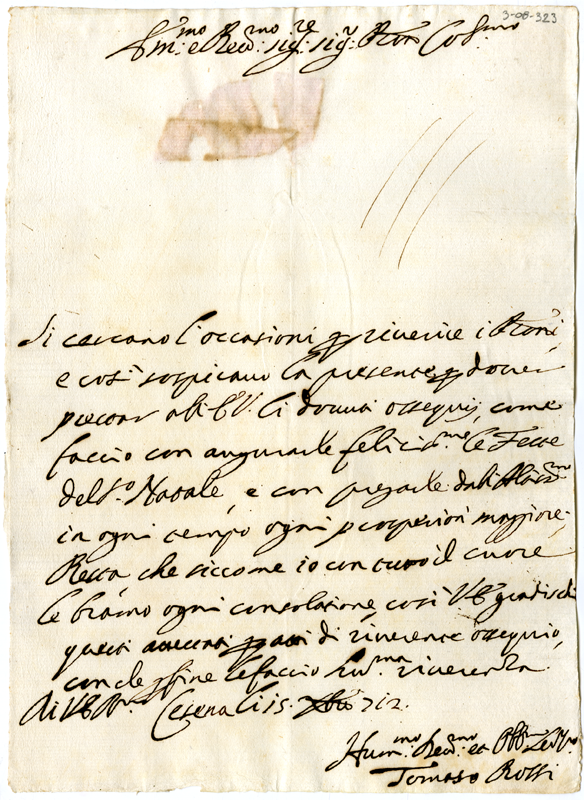 3-08-323
Ill.mo e Rev.mo sig.re sig.r Pron Col.mo
Si cercano l'occasioni p riverire i Proni,
e così sospirano la presente p dover
prestar à V. li dovuti ossequij, come
faccio con augurarle feliciss.me le Feste
del S.o Natale, e con pregarle dall'Altiss.mo
in ogni tempo ogni prosperità maggiore.
Resta che siccome io con tutto il cuore
le bramo ogni consolatione così V. gradisca
questi di riverente ossequio,
con che p fine le faccio hum.ma riverenza
Di V. Cesena li 15. Xbre 712.
Hum.mo Rev.mo et Obb.
Tomaso Rossi